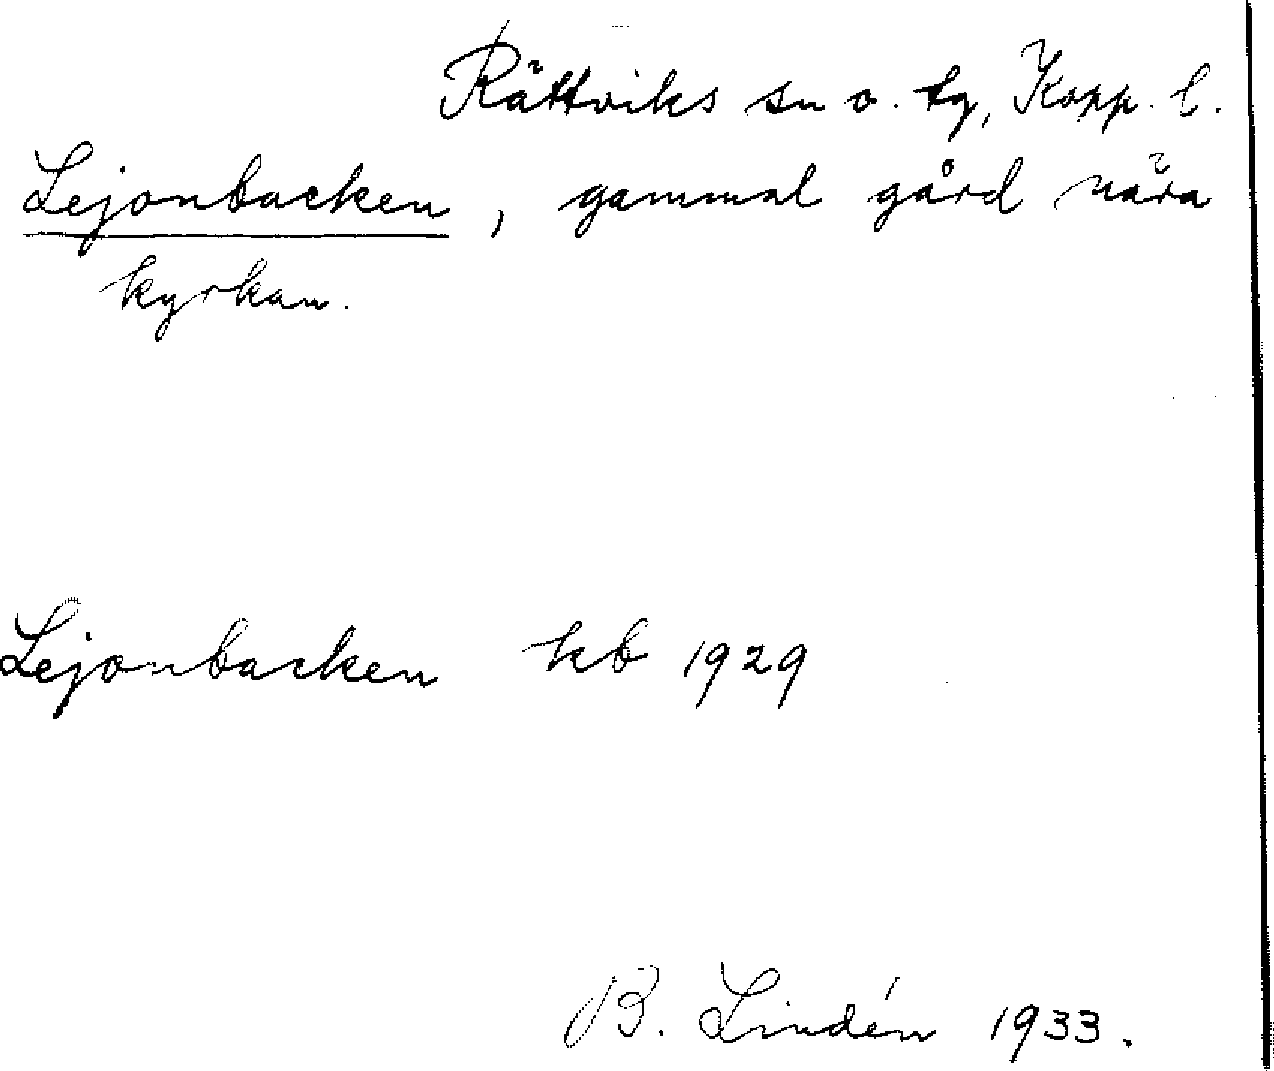 Rättviks sn o. tg, Kopp. l.
Lejonbacken, gammal gård nära
kyrkan.
Lejonbacken kb 1929
B. Lindén 1933.